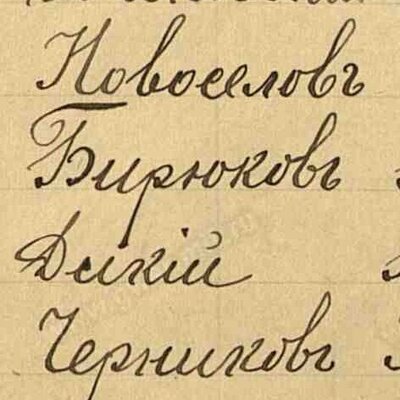 Новоселовъ
Бирюковъ
Дикій
Черниковъ